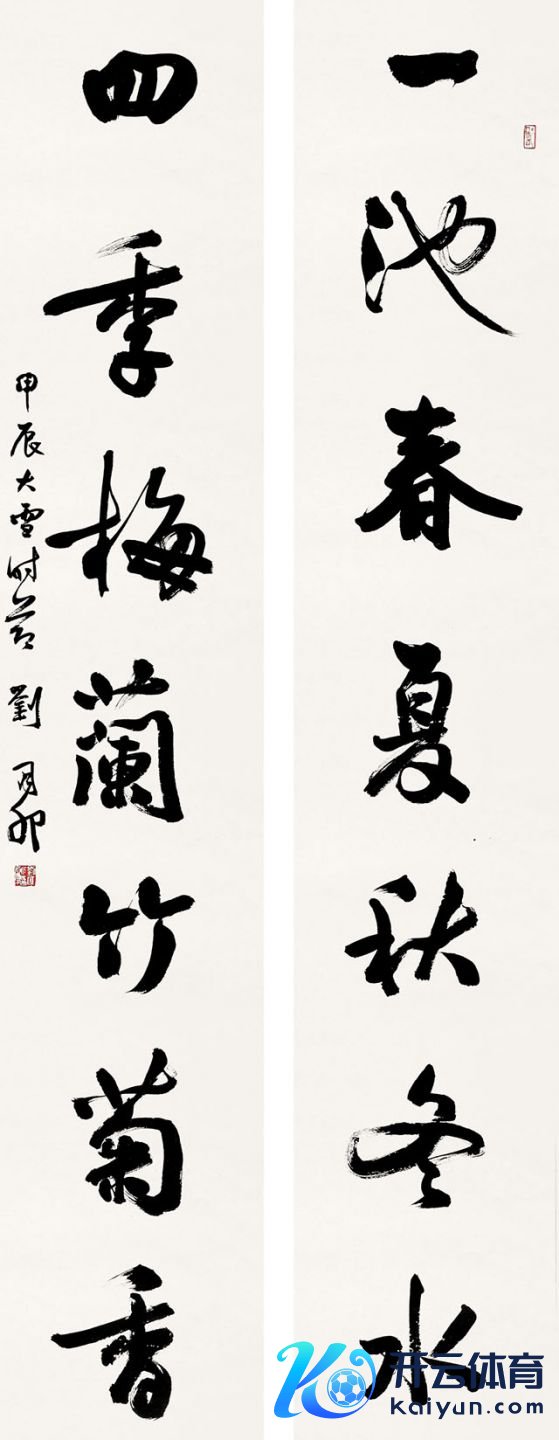 一池春夏秋冬水
四季梅蘭竹菊香
甲辰大雪時節 劉月卯
开云体育
kaiyun.com